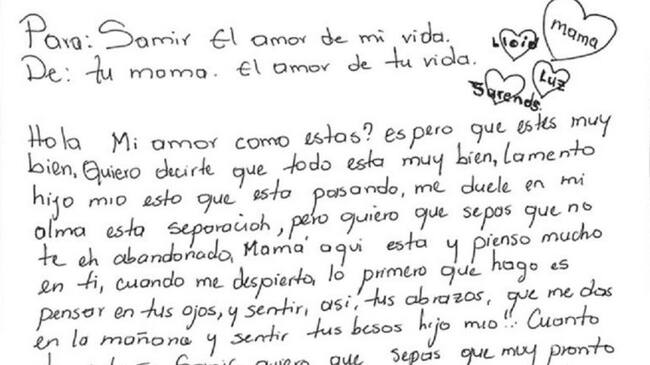 Para: Samir El amor de mi vida.
De: tu mama. El amor de tu vida.
mama
Lloid
Luz
Sarends.
Hola Mi amor como estas? espero que estes muy
bien, Quiero decirte que todo esta muy bien, lamento
hijo mio esto que esta pasando, me duele en mi
alma esta separacion, pero quiero que sepas que no
te eh abandonado, Mamá aqui esta y pienso mucho
en ti, cuando me despierto, lo primero que hago es
pensar en tus ojos, y sentir, asi, tus abrazos, que me das
en la mañana y sentir tus besos hijo mio!! Cuanto
Samir quiero que sepas que muy pronto